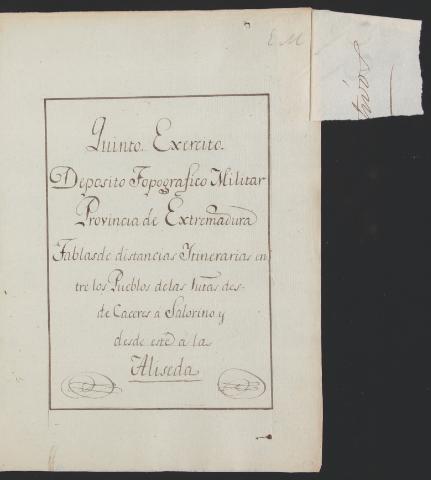 E.M
Quinto. Exercito.
Deposito Topografico Militar
Provincia de Extremadura
Tablas de distancias Itinerarias en
tre los Pueblos de las rutas des-
de Caceres a Salorino y
desde este a la
Aliseda